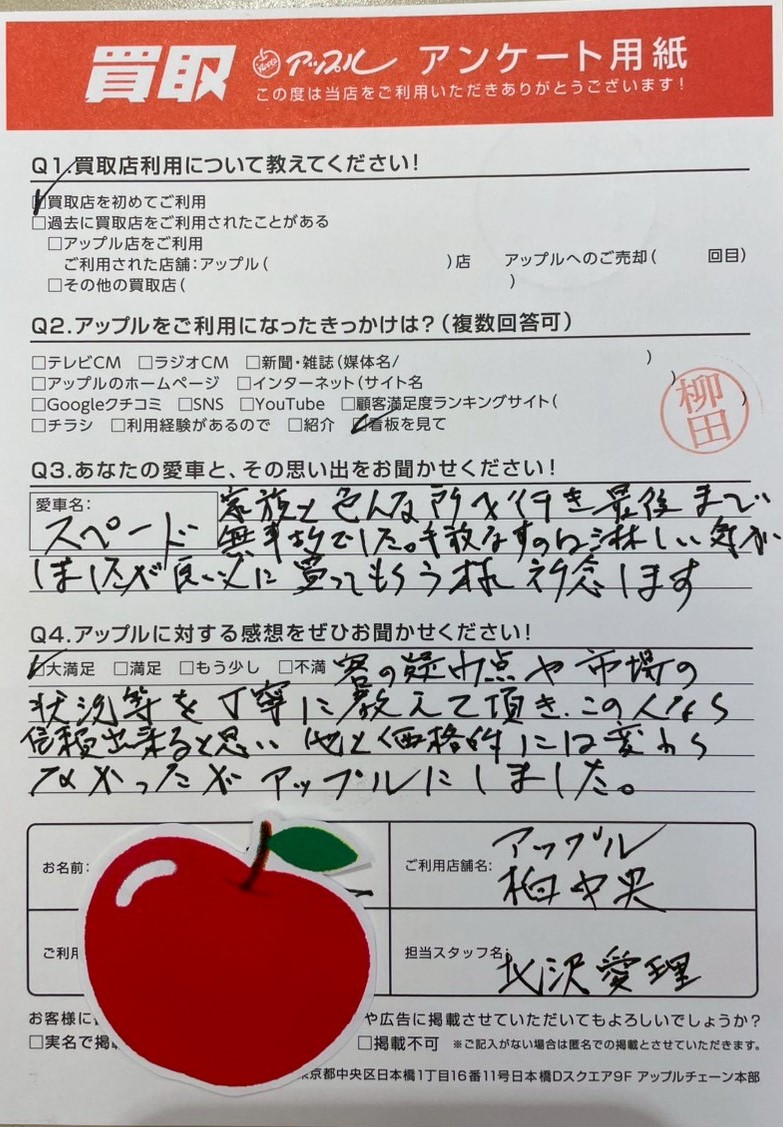 買取 アップル アンケート用紙
この度は当店をご利用いただきありがとうございます!
Q1.買取店利用について教えてください!
□買取店を初めてご利用
□過去に買取店をご利用されたことがある
□アップル店をご利用
ご利用された店舗:アップル( )店 アップルへのご売却( 回目)
□その他の買取店( )
Q2.アップルをご利用になったきっかけは?(複数回答可)
□テレビCM □ラジオCM □新聞・雑誌(媒体名/ )
□アップルのホームページ □インターネット(サイト名 )
□Googleクチコミ □SNS □YouTube □顧客満足度ランキングサイト( )
□チラシ □利用経験があるので □紹介 □看板を見て
柳田
Q3.あなたの愛車と、その思い出をお聞かせください!
愛車名:
スペード
家族と色んな所へ行き最後まで
無事故でした。手放なすのは淋しい気が
しましたが良い人に買ってもらう様祈念します
Q4.アップルに対する感想をぜひお聞かせください!
□大満足 □満足 □もう少し □不満 客の疑問点や市場の
状況等を丁寧に教えて頂き、この人なら
信頼出来ると思い他と価格的には変わら
なかったがアップルにしました。
お名前:
ご利用店舗名: アップル
柏中央
ご利用
担当スタッフ名: 北沢愛理
お客様に や広告に掲載させていただいてもよろしいでしょうか?
□実名で掲 □掲載不可 ※ご記入がない場合は匿名での掲載とさせていただきます。
東京都中央区日本橋1丁目16番11号日本橋Dスクエア9F アップルチェーン本部